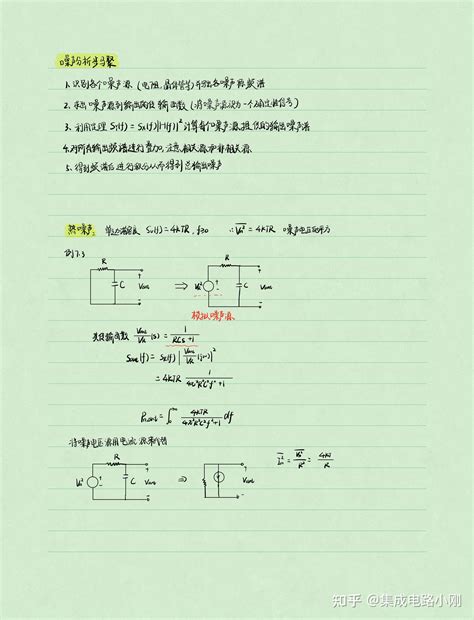 噪声分析步骤
1. 识别各个噪声源 (电阻、晶体管等) 并列出各噪声源频谱
2. 求出噪声源到输出的传输函数 (将噪声源视为一个确定性信号)
3. 利用定理 S_Y(f) = S_X(f)|H(f)|² 计算每个噪声源提供的输出噪声谱
4. 对所有输出频谱进行叠加，注意相关源和非相关源
5. 得到频谱后进行积分从而得到总输出噪声
热噪声: 单边谱密度 Sv(f) = 4kTR, f≥0 ∴ Vn² = 4kTR 噪声电压的平方
例7.3
R C Vout ⇒ Vn² R C Vout
模拟噪声源
传输函数 Vout/VR (s) = 1/(RCS+1)
Sout(f) = SR(f) |Vout/VR (jω)|²
= 4kTR 1/(4π²R²C²f²+1)
Pn,out = ∫₀^∞ 4kTR/(4π²R²C²f²+1) df
将噪声电压源用电流源来代替
Vn² R C Vout ⇒ Vout In² = Vn²/R² = 4kT/R
知乎 @集成电路小刚